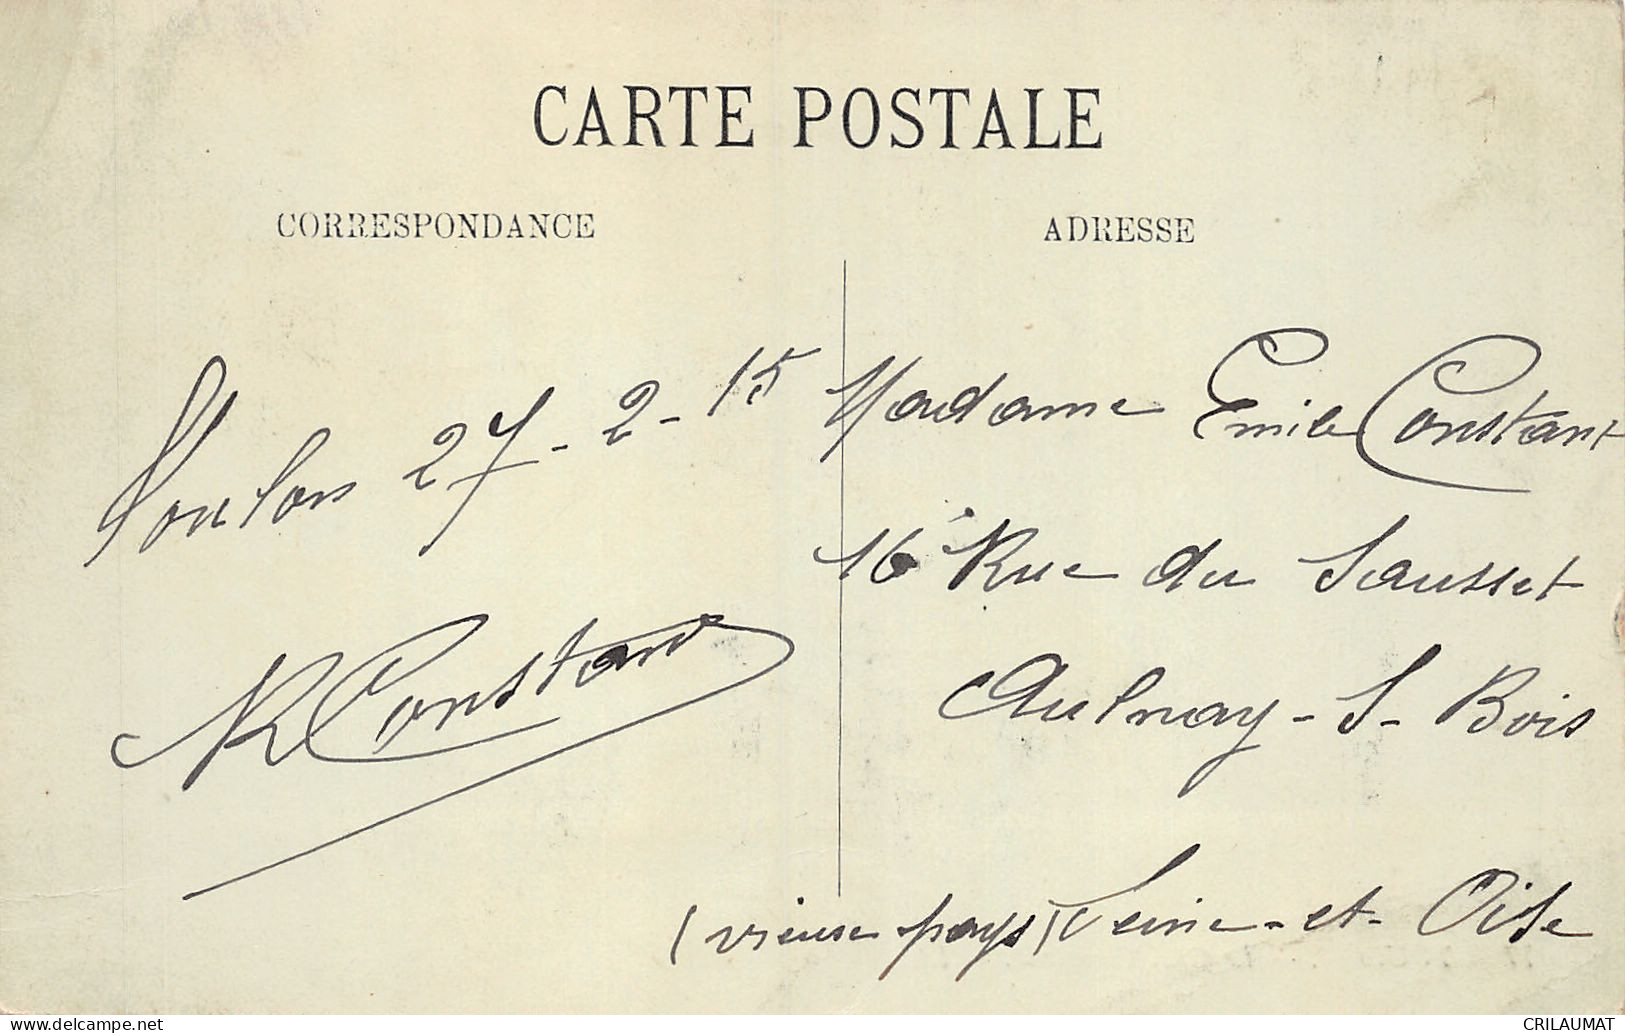 CARTE POSTALE
CORRESPONDANCE
ADRESSE
Toulon 27-2-15
R Constant
Madame Emile Constant
16 Rue du Sausset
Aulnay-S-Bois
(vieux pays) Seine-et-Oise
www.delcampe.net
CRILAUMAT